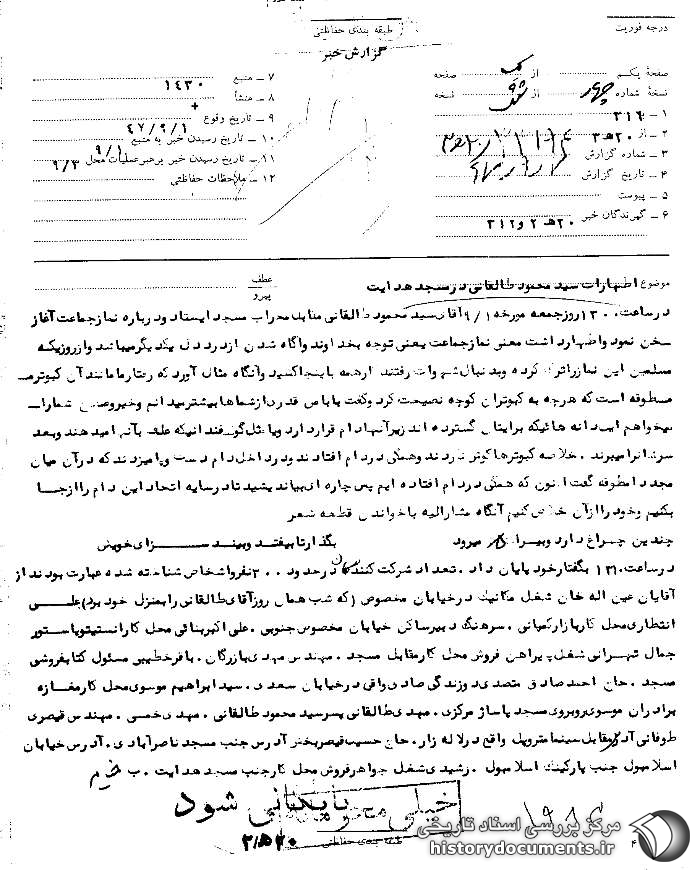 درجه فوریت
طبقه بندی حفاظتی
گزارش خبر
صفحهٔ یکم از یک صفحه
نسخهٔ شماره چهار از شش نسخه
۱ ـ ۳۱۶
۲ ـ از ۲۰ هـ ۳
۳ ـ شماره گزارش
۴ ـ تاریخ گزارش
۵ ـ پیوست
۶ ـ گیرندگان خبر ۲۰ هـ ۲ و ۳۱۲
۷ ـ منبع ۱۴۳۰
۸ ـ منشأ +
۹ ـ تاریخ وقوع ۴۷/۹/۱
۱۰ ـ تاریخ رسیدن خبر به منبع ۹/۱
۱۱ ـ تاریخ رسیدن خبر برهبرعملیات محل ۹/۳
۱۲ ـ ملاحظات حفاظتی
موضوع اظهارات سید محمود طالقانی در مسجد هدایت
عطف
پیرو
در ساعت ۱۳۰۰ روز جمعه مورخه ۹/۱ آقای سید محمود طالقانی مقابل محراب مسجد ایستاد و درباره نماز جماعت آغاز
سخن نمود و اظهار داشت معنی نماز جماعت یعنی توجه بخداوند و آگاه شدن از درد دل یکدیگر میباشد و از روزیکه
مسلمین این نماز را ترک کرده و بدنبال شهوات رفتند از همه جا باینجا کشید و آنگاه مثال آورد که رفتار ما مانند آن کبوتر
مطوقه است که هرچه به کبوتران کوچه نصیحت کرد و گفت بابا من قدری از شماها بیشتر میدانم و خیر و صلاح شما را
میخواهم این دانه هائیکه برایتان گسترده اند زیر آنها دام قرار دارد و یا مثل گوسفندانیکه علف بآنها میدهند و بعد
سرشانرا میبرند . خلاصه کبوترها گوش ندادند و همگی در دام افتادند و در داخل دام دست و پا میزدند که در آن میان
مجددا مطوقه گفت اکنون که همگی در دام افتاده ایم پس چاره ای بیاندیشید تا در سایه اتحاد این دام را از جا
بکنیم و خود را از آن خلاص کنیم آنگاه مشارالیه با خواندن قطعه شعر
چندین چراغ دارد و بیراهه میرود بگذار تا بیفتد و بیند سزای خویش
در ساعت ۱۳۱۰ بگفتار خود پایان داد . تعداد شرکت کنندگان در حدود ۲۰۰ نفر و اشخاص شناخته شده عبارت بودند از
آقایان عین اله خان شغل مکانیک در خیابان مخصوص (که شب همان روز آقای طالقانی را بمنزل خود برد) علی
انتظاری محل کار بازار کمپانی . سرهنگ دبیر ساکن خیابان مخصوص جنوبی . علی اکبر بنائی محل کار انستیتو پاستور
جمال تهرانی شغل پیراهن فروش محل کار مقابل مسجد . مهندس مهدی بازرگان . باقر خطیبی مسئول کتابفروشی
مسجد . حاج احمد صادق متصدی دوزندگی صادق واقع در خیابان سعدی . سید ابراهیم موسوی محل کار مغازه
برادران موسوی روبروی مسجد پاساژ مرکزی . مهدی طالقانی پسر سید محمود طالقانی . مهدی خمسی . مهندس قیصری
طوفانی آدرس مقابل سینما متروپل واقع در لاله زار . حاج حسین قیصر بخش آدرس جنب مسجد ناصرآبادی . آدرس خیابان
اسلامبول جنب پارکینگ اسلامبول . رشیدی شغل جواهر فروش محل کار جنب مسجد هدایت . ب
خیلی محرمانه
بایگانی شود
۲۰ هـ ۲
طبقه بندی حفاظتی
۱۹۸۴
مرکز بررسی اسناد تاریخی
historydocuments.ir